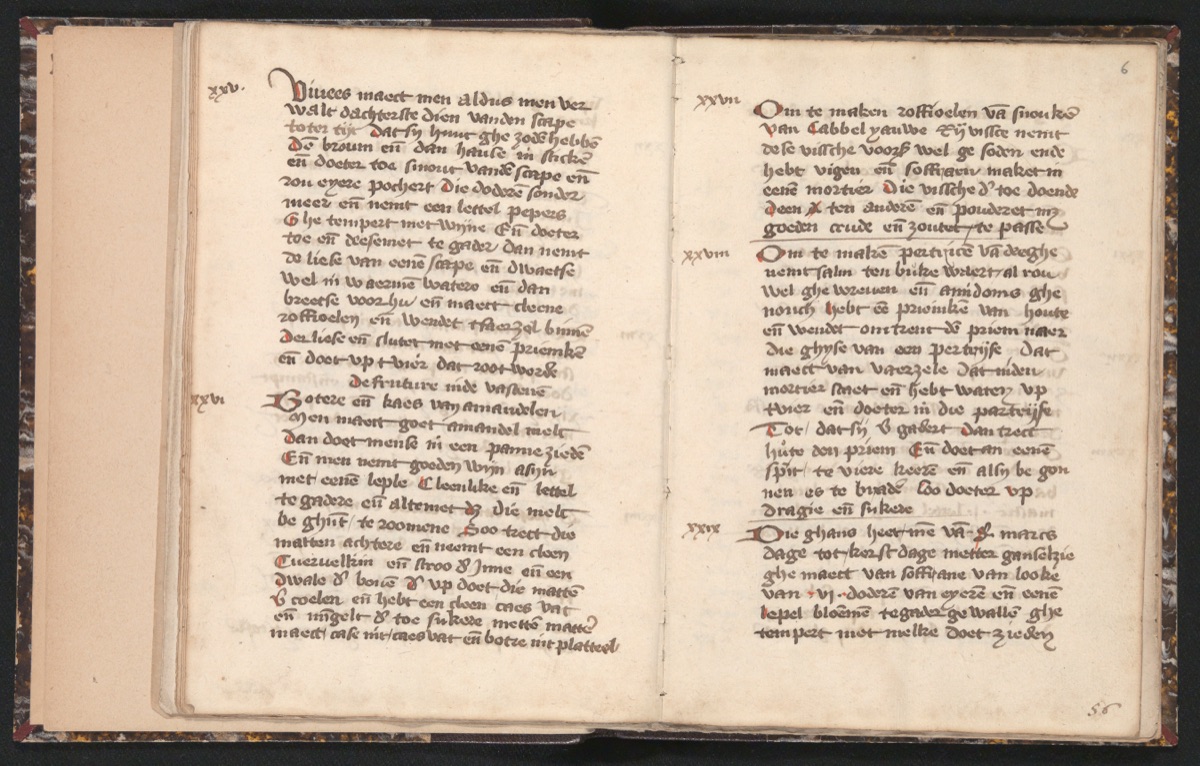 xxv.
Viuees maect men aldus men ver
walt dachterste dien vanden scape
toter tijt datsij huut ghe zodē hebbē
Dē broum eñ dan hause in stickē
eñ doeter toe smout vandē scape eñ
rou eyere pochert Die doderē sonder
meer eñ nemt een lettel pepers
Ghe tempert met wijne Eñ doeter
toe eñ deesemet te gader dan nemt
de liese van eenē scape eñ dwaetse
wel in waermē watere eñ dan
breetse voor hu eñ maect cleene
roffioelen eñ wendet tfaerzel binnē
Der liese eñ slutet met eenē priemkē
eñ doet vp tvier dat root worde
De fruture inde vastenē
xxvi
Botere eñ kaes van amandelen
Men maect goet amandel melc
Dan doet mense in een panne ziedē
Eñ men nemt goeden wijn asijn
met eenē leple Cleenlike eñ lettel
te gadere eñ altemet die melc
be ghīt te roomene Soo trect die
matten achtere eñ neemt een cleen
Tueruelkin eñ stroo Inne eñ een
dwale bouē vp doet die mattē
coelen eñ hebt een cleen caes vat
eñ mīgelt toe sukere mettē mattē
maect case uit caes vat eñ botre uit platteel
6
xxvii
Om te maken roffioelen vā snoukē
van Cabbel yauwe Rij vissce nemt
dese vissche voors wel ge soden ende
hebt vigen eñ soffraen maket in
eenē mortier Die vissche toe doende
Deen ten anderē eñ pouderet in
goeden crude eñ zoutet te passe
xxviii
Om te makē pertrijcē vā deeghe
nemt salm ten buke waert al rou
wel ghewreuen eñ amidoms ghe
nouch hebt eē priemkē van houte
eñ wendet omtrent dē priem naer
die ghyse van een pertrijse Dat
maect van vaerzele Dat inden
mortier staet eñ hebt water vp
tvier eñ doeter in die partrijse
Tot datsij gadert Dan trect
hute den priem Eñ doet an eenē
spit te viere keerē eñ alsy be gon
nen es te bradē Soo doeter vp
dragie eñ sukere
xxix
Die ghans heetmē vā marcs
dage tot kerst dage metter ganselzie
ghe maect van soffrane van looke
van .vi. doderē van eyerē eñ eenē
lepel bloemē tegader gewallē ghe
tempert met melke doet zieden
56